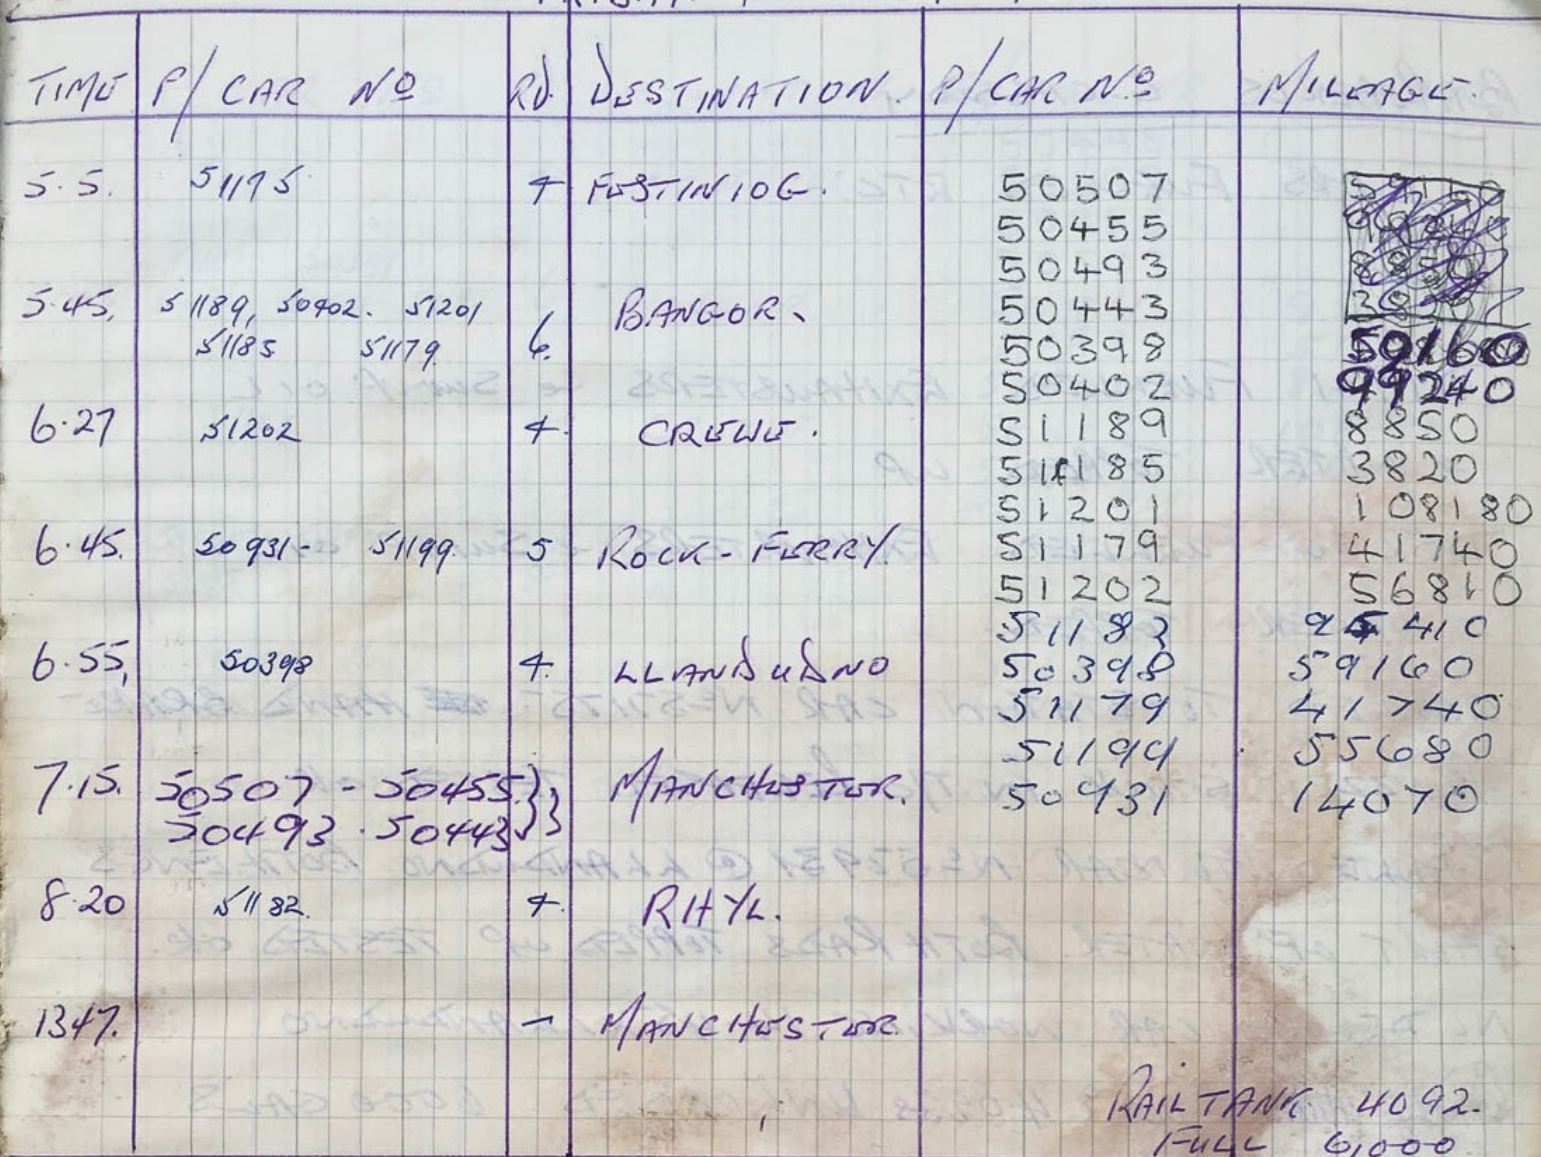 TIME P/CAR No RD. DESTINATION. P/CAR No MILEAGE.
5.5. 51175 4 FESTINIOG. 50507
50455
50493
5.45. 51189, 50402. 51201 BANGOR. 50443
51185 51179 6. 50398 59160
50402 99240
6.27 51202 4 CREWE. 51189 8850
51185 3820
51201 108180
6.45. 50931- 51199. 5 ROCK-FERRY. 51179 41740
51202 56810
51182 95410
6.55, 50398 4. LLANDUDNO 50398 59160
51179 41740
51194 55680
7.15. 50507 - 50455 } 3 MANCHESTER. 50931 14070
50493 . 50443
8.20 51182. 4. RHYL.
1347. – MANCHESTER
RAILTANK. 4092.
FULL 6,000